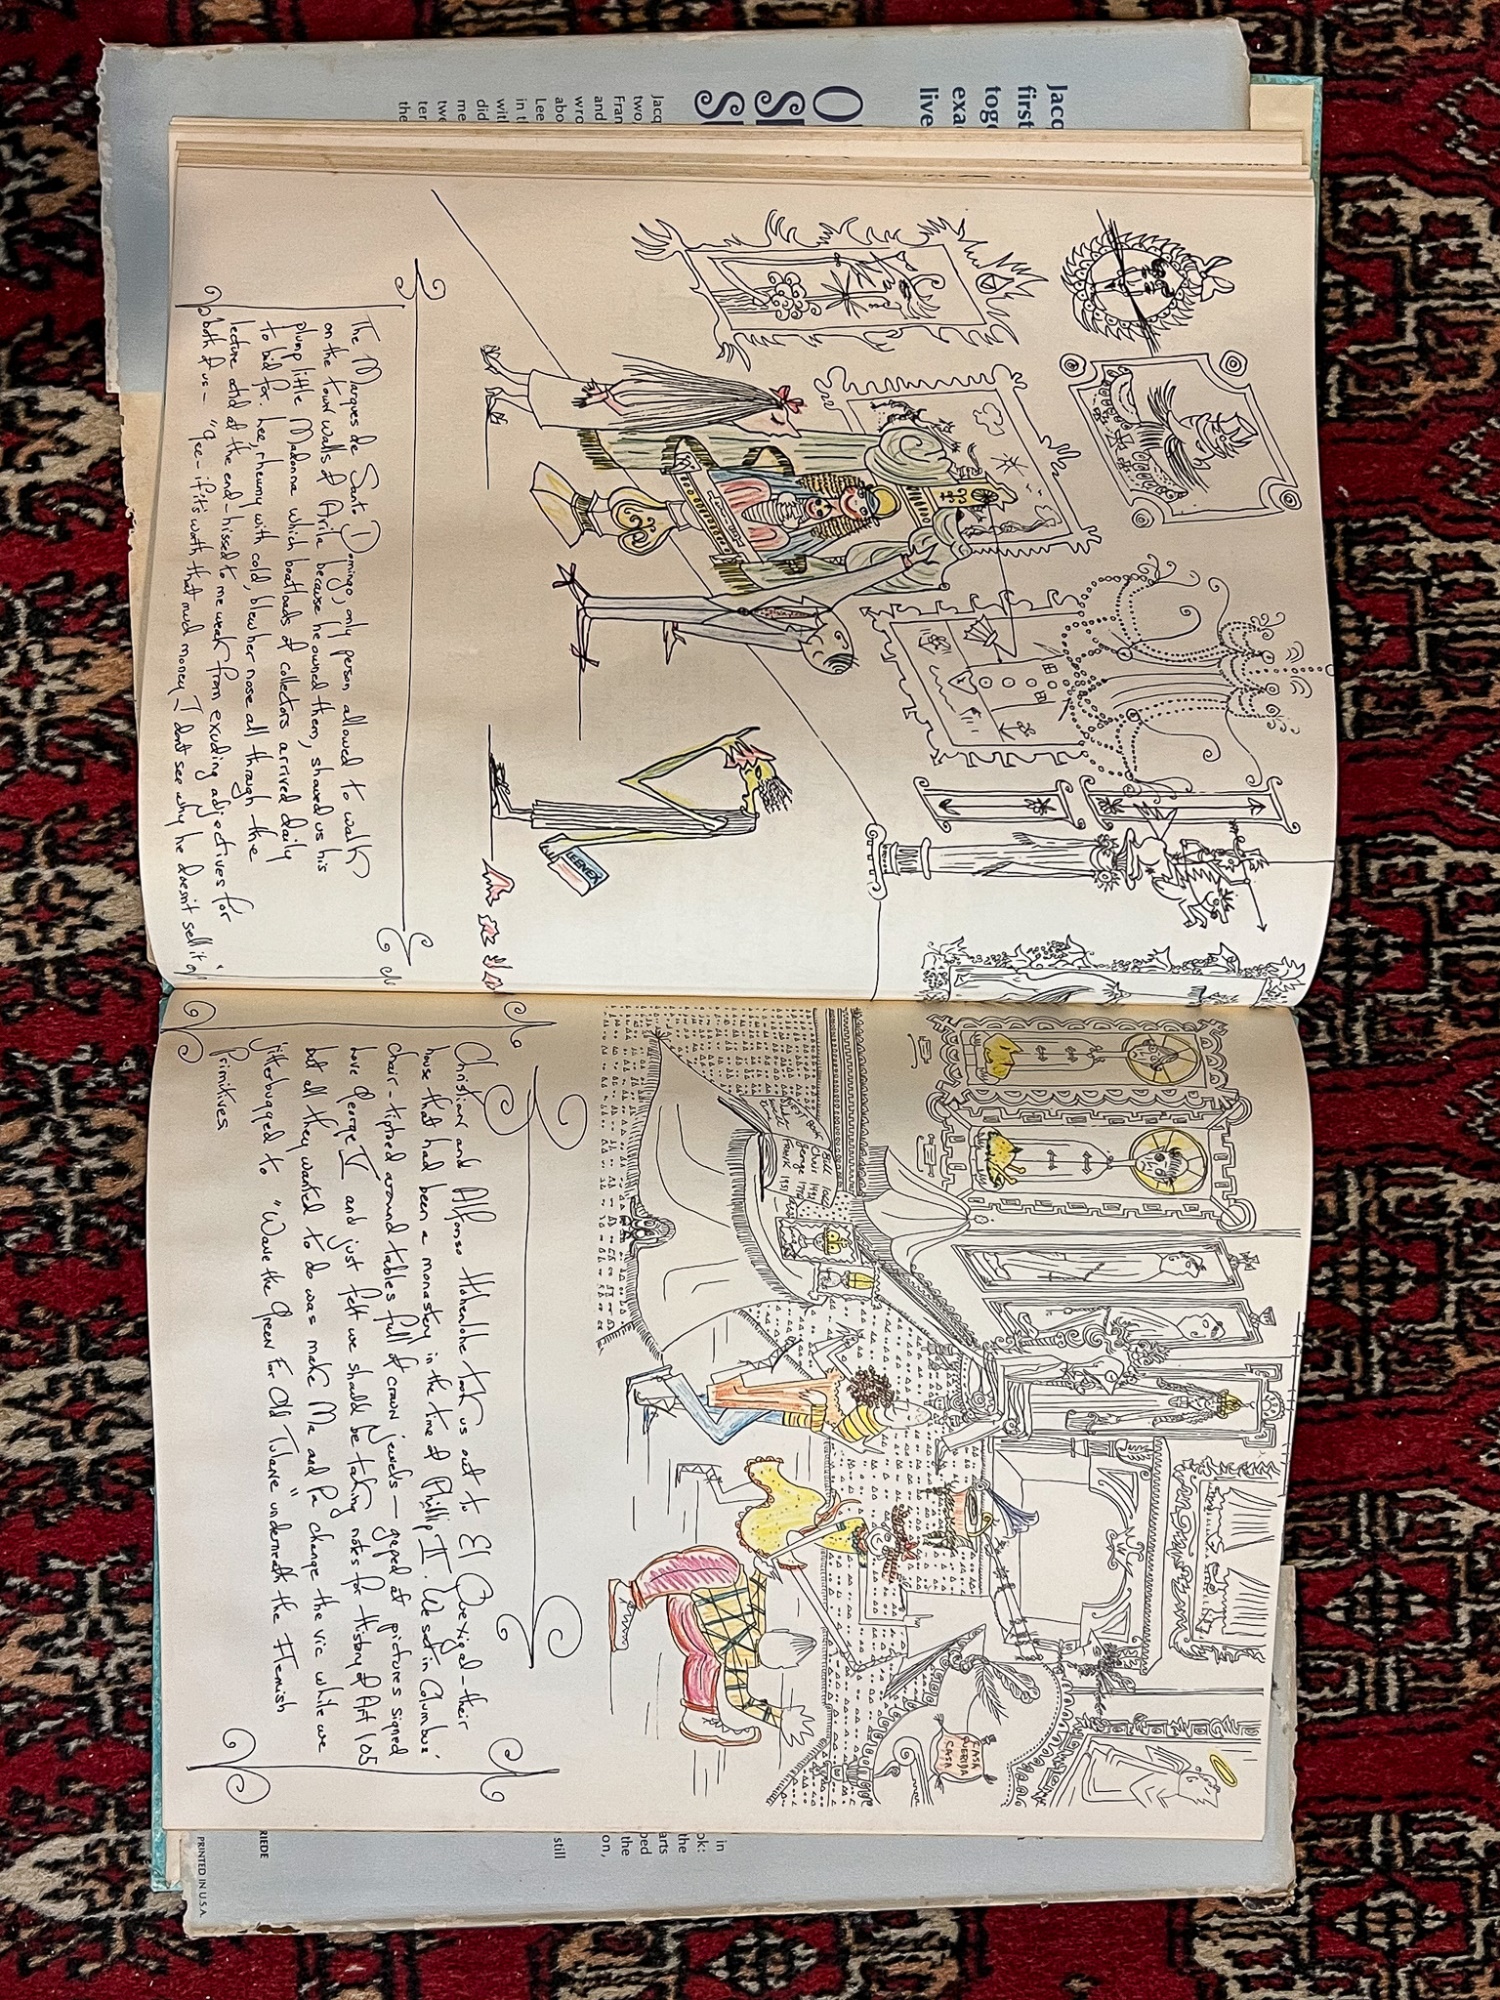 Jacq
first
toge
exac
live
O
SP
SU
Jacq
two,
Fran
and
wro
abo
Lee
in th
with
did
me
twe
ter
the
KLEENEX
The Marques de Santo Domingo, only person allowed to walk
on the town walls of Avila because he owned them, showed us his
plump little Madonna which boatloads of collectors arrived daily
to bid for. Lee, rheumy with cold, blew her nose all through the
lecture and at the end - hissed to me weak from exuding adjectives for
both of us - "Gee - if it's worth that much money I don't see why he doesn't sell it"
Bill
Chris 1951
George 1776
Frank 1951
CASA
QUERIDA
CASA
Christian and Alfonso Hohenlohe took us out to El Quexigal - their
house that had been a monastery in the time of Phillip II. We sat in Columbus'
chair - tiptoed around tables full of crown jewels - gaped at pictures signed
love George V and just felt we should be taking notes for History of Art 105
but all they wanted to do was make Me and Pa change the vic while we
jitterbugged to "Wave the Green For Old Tulane" underneath the Flemish
Primitives
in
ok:
the
arts
ped
the
on,
still
RIEDE
PRINTED IN U.S.A.